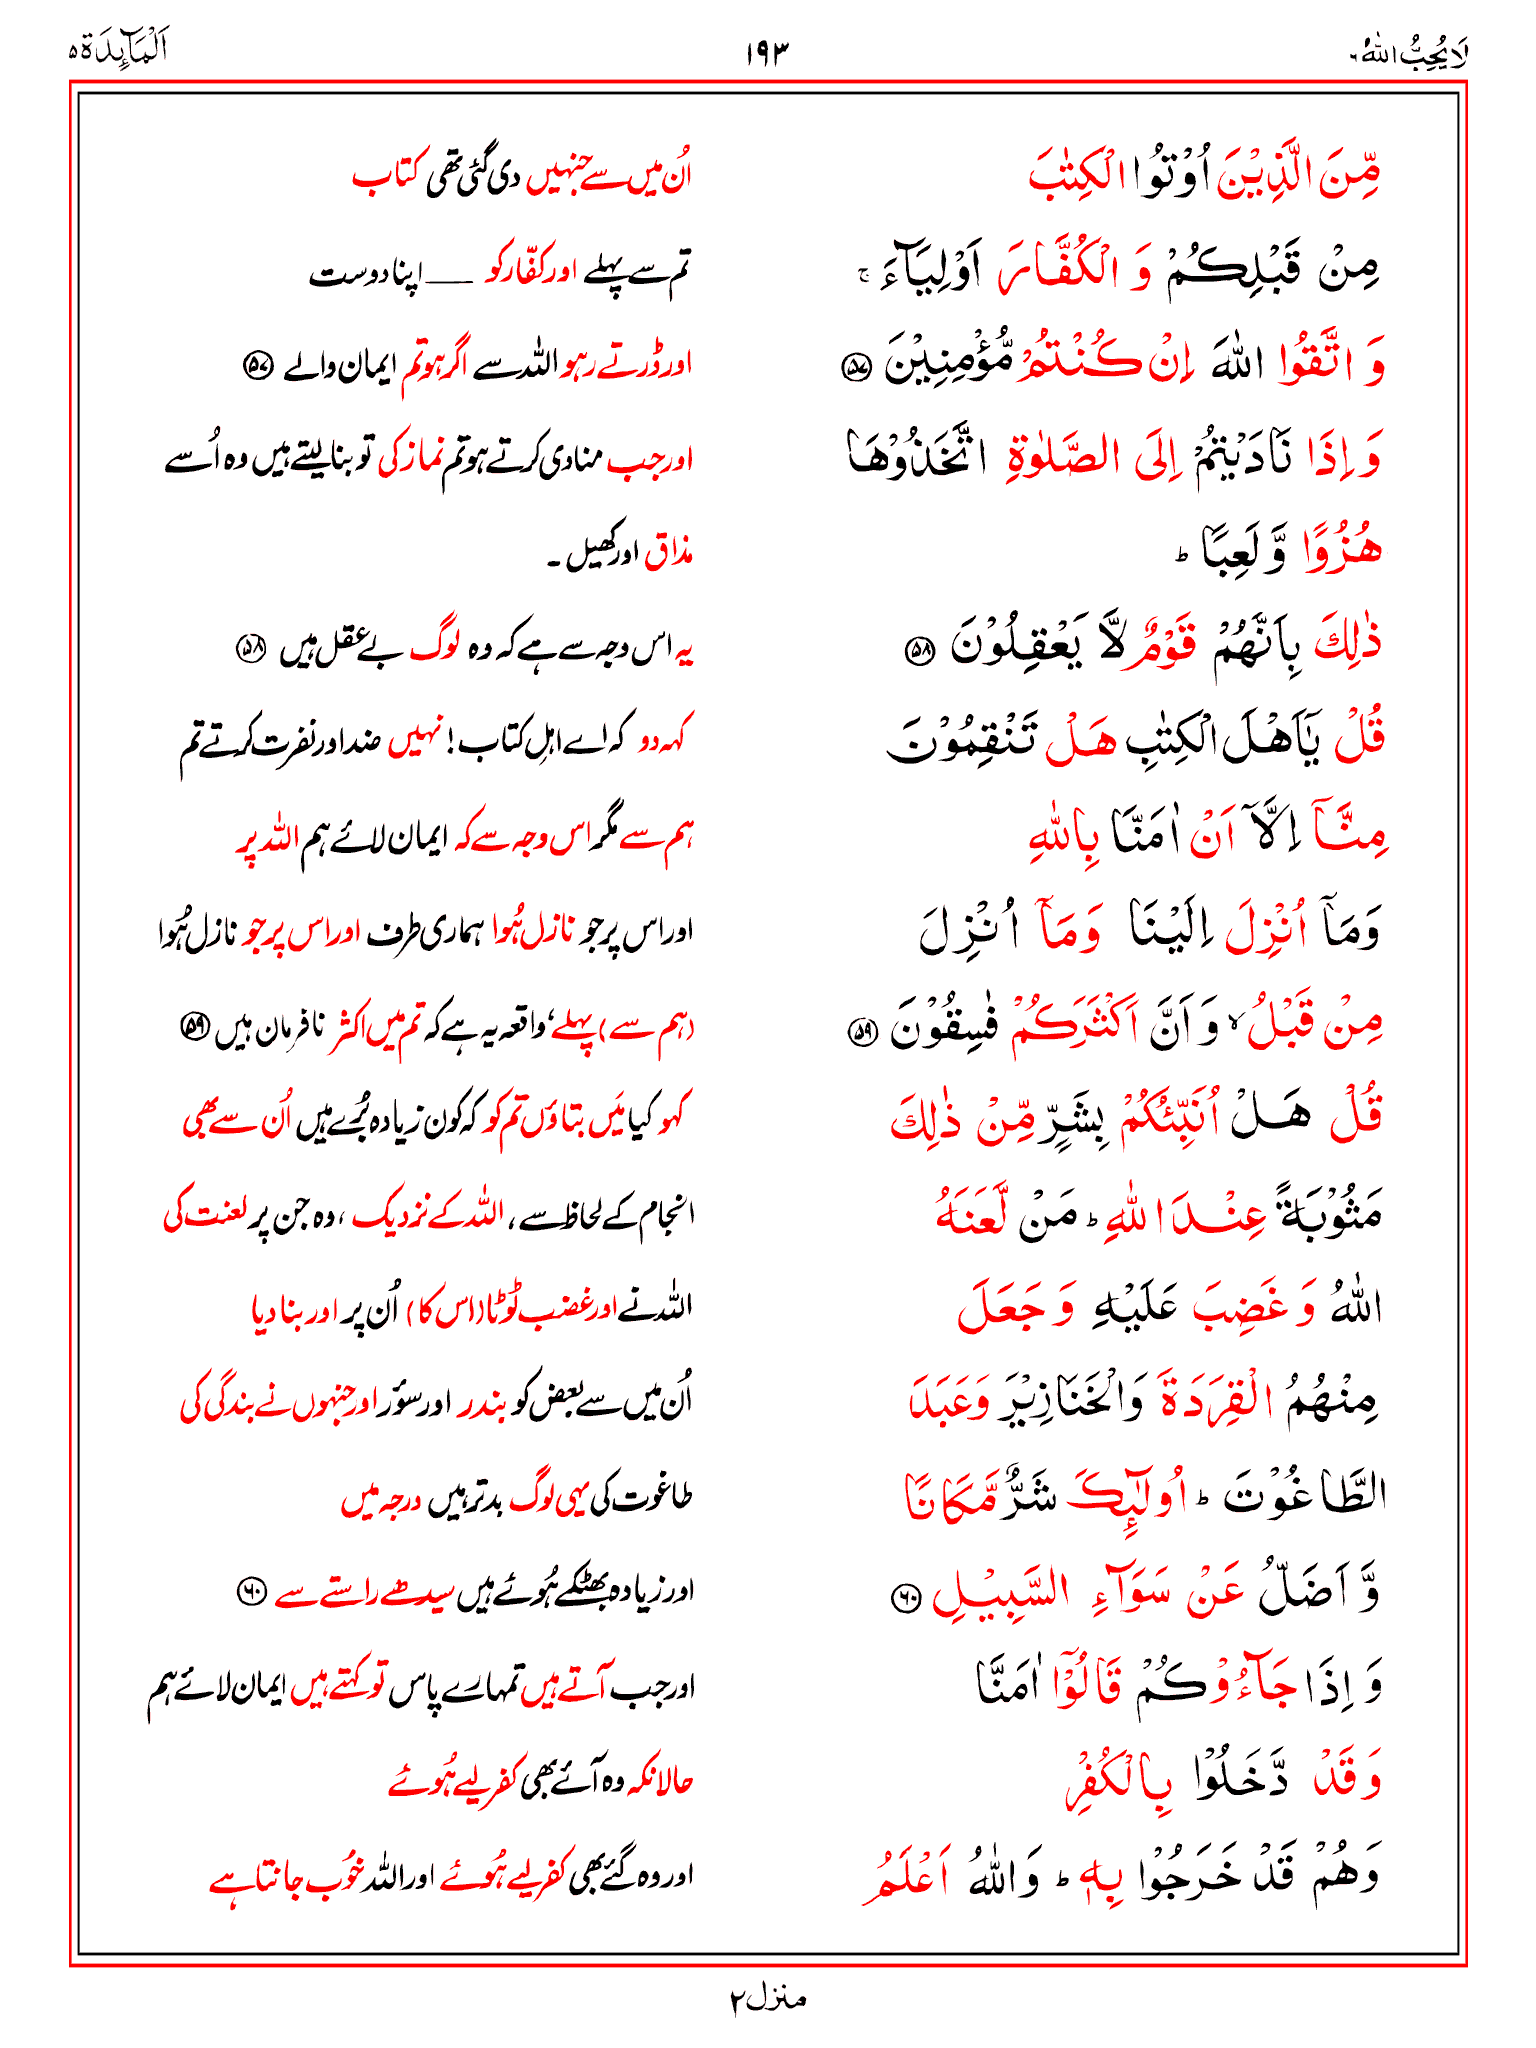 لَا يُحِبُّ اللهُ ٦
١٩٣
اَلْمَآئِدَة ٥
مِّنَ الَّذِيْنَ اُوْتُوا الْكِتٰبَ
اُن میں سے جنہیں دی گئی تھی کتاب
مِنْ قَبْلِكُمْ وَ الْكُفَّارَ اَوْلِيَآءَ ۚ
تم سے پہلے اور کفّار کو ــــ اپنا دوست
وَ اتَّقُوا اللهَ اِنْ كُنْتُمْ مُّؤْمِنِيْنَ ۵۷
اور ڈرتے رہو اللہ سے اگر ہو تم ایمان والے ۵۷
وَ اِذَا نَادَيْتُمْ اِلَى الصَّلٰوةِ اتَّخَذُوْهَا
اور جب منادی کرتے ہو تم نماز کی تو بنا لیتے ہیں وہ اُسے
هُزُوًا وَّ لَعِبًا ؕ
مذاق اور کھیل ۔
ذٰلِكَ بِاَنَّهُمْ قَوْمٌ لَّا يَعْقِلُوْنَ ۵۸
یہ اس وجہ سے ہے کہ وہ لوگ بے عقل ہیں ۵۸
قُلْ يٰۤاَهْلَ الْكِتٰبِ هَلْ تَنْقِمُوْنَ
کہہ دو کہ اے اہلِ کتاب! نہیں ضد اور نفرت کرتے تم
مِنَّآ اِلَّآ اَنْ اٰمَنَّا بِاللهِ
ہم سے مگر اس وجہ سے کہ ایمان لائے ہم اللہ پر
وَمَآ اُنْزِلَ اِلَيْنَا وَمَآ اُنْزِلَ
اور اس پر جو نازل ہُوا ہماری طرف اور اس پر جو نازل ہُوا
مِنْ قَبْلُ ۙ وَ اَنَّ اَكْثَرَكُمْ فٰسِقُوْنَ ۵۹
(ہم سے) پہلے، واقعہ یہ ہے کہ تم میں اکثر نافرمان ہیں ۵۹
قُلْ هَلْ اُنَبِّئُكُمْ بِشَرٍّ مِّنْ ذٰلِكَ
کہو کیا مَیں بتاؤں تم کو کہ کون زیادہ بُرے ہیں اُن سے بھی
مَثُوْبَةً عِنْدَ اللهِ ؕ مَنْ لَّعَنَهُ
انجام کے لحاظ سے، اللہ کے نزدیک، وہ جن پر لعنت کی
اللهُ وَ غَضِبَ عَلَيْهِ وَ جَعَلَ
اللہ نے اور غضب ٹوٹا (اس کا) اُن پر اور بنا دیا
مِنْهُمُ الْقِرَدَةَ وَالْخَنَازِيْرَ وَعَبَدَ
اُن میں سے بعض کو بندر اور سؤر اور جنہوں نے بندگی کی
الطَّاغُوْتَ ؕ اُولٰٓئِكَ شَرٌّ مَّكَانًا
طاغوت کی یہی لوگ بدتر ہیں درجہ میں
وَّ اَضَلُّ عَنْ سَوَآءِ السَّبِيْلِ ۶۰
اور زیادہ بھٹکے ہُوئے ہیں سیدھے راستے سے ۶۰
وَ اِذَا جَآءُوْكُمْ قَالُوْٓا اٰمَنَّا
اور جب آتے ہیں تمہارے پاس تو کہتے ہیں ایمان لائے ہم
وَ قَدْ دَّخَلُوْا بِالْكُفْرِ
حالانکہ وہ آئے بھی کفر لیے ہُوئے
وَهُمْ قَدْ خَرَجُوْا بِهٖ ؕ وَاللهُ اَعْلَمُ
اور وہ گئے بھی کفر لیے ہُوئے اور اللہ خُوب جانتا ہے
منزل ٢